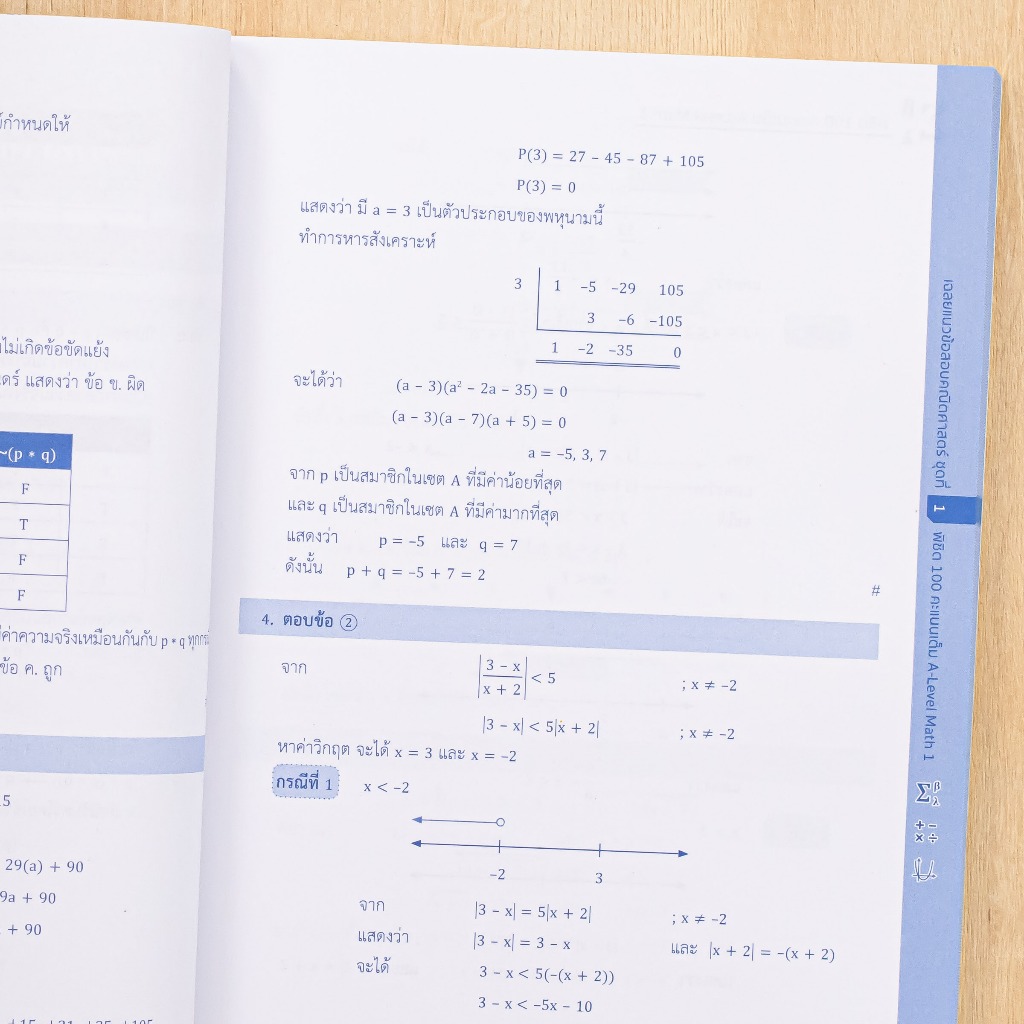 กำหนดให้
ไม่เกิดข้อขัดแย้ง
แสดงว่า ข้อ ข. ผิด
~(p * q)
F
T
F
F
ค่าความจริงเหมือนกันกับ p * q
ข้อ ค. ถูก
29(a) + 90
9a + 90
+ 90
P(3) = 27 – 45 – 87 + 105
P(3) = 0
แสดงว่า มี a = 3 เป็นตัวประกอบของพหุนามนี้
ทำการหารสังเคราะห์
3 1 –5 –29 105
3 –6 –105
1 –2 –35 0
จะได้ว่า (a – 3)(a² – 2a – 35) = 0
(a – 3)(a – 7)(a + 5) = 0
a = –5, 3, 7
จาก p เป็นสมาชิกในเซต A ที่มีค่าน้อยที่สุด
และ q เป็นสมาชิกในเซต A ที่มีค่ามากที่สุด
แสดงว่า p = –5 และ q = 7
ดังนั้น p + q = –5 + 7 = 2
#
4. ตอบข้อ ②
จาก |(3 – x)/(x + 2)| < 5 ; x ≠ –2
|3 – x| < 5|x + 2| ; x ≠ –2
หาค่าวิกฤต จะได้ x = 3 และ x = –2
กรณีที่ 1 x < –2
–2 3
จาก |3 – x| = 5|x + 2| ; x ≠ –2
แสดงว่า |3 – x| = 3 – x และ |x + 2| = –(x + 2)
จะได้ 3 – x < 5(–(x + 2))
3 – x < –5x – 10
เฉลยแนวข้อสอบคณิตศาสตร์ ชุดที่ 1 พิชิต 100 คะแนนเต็ม A-Level Math 1